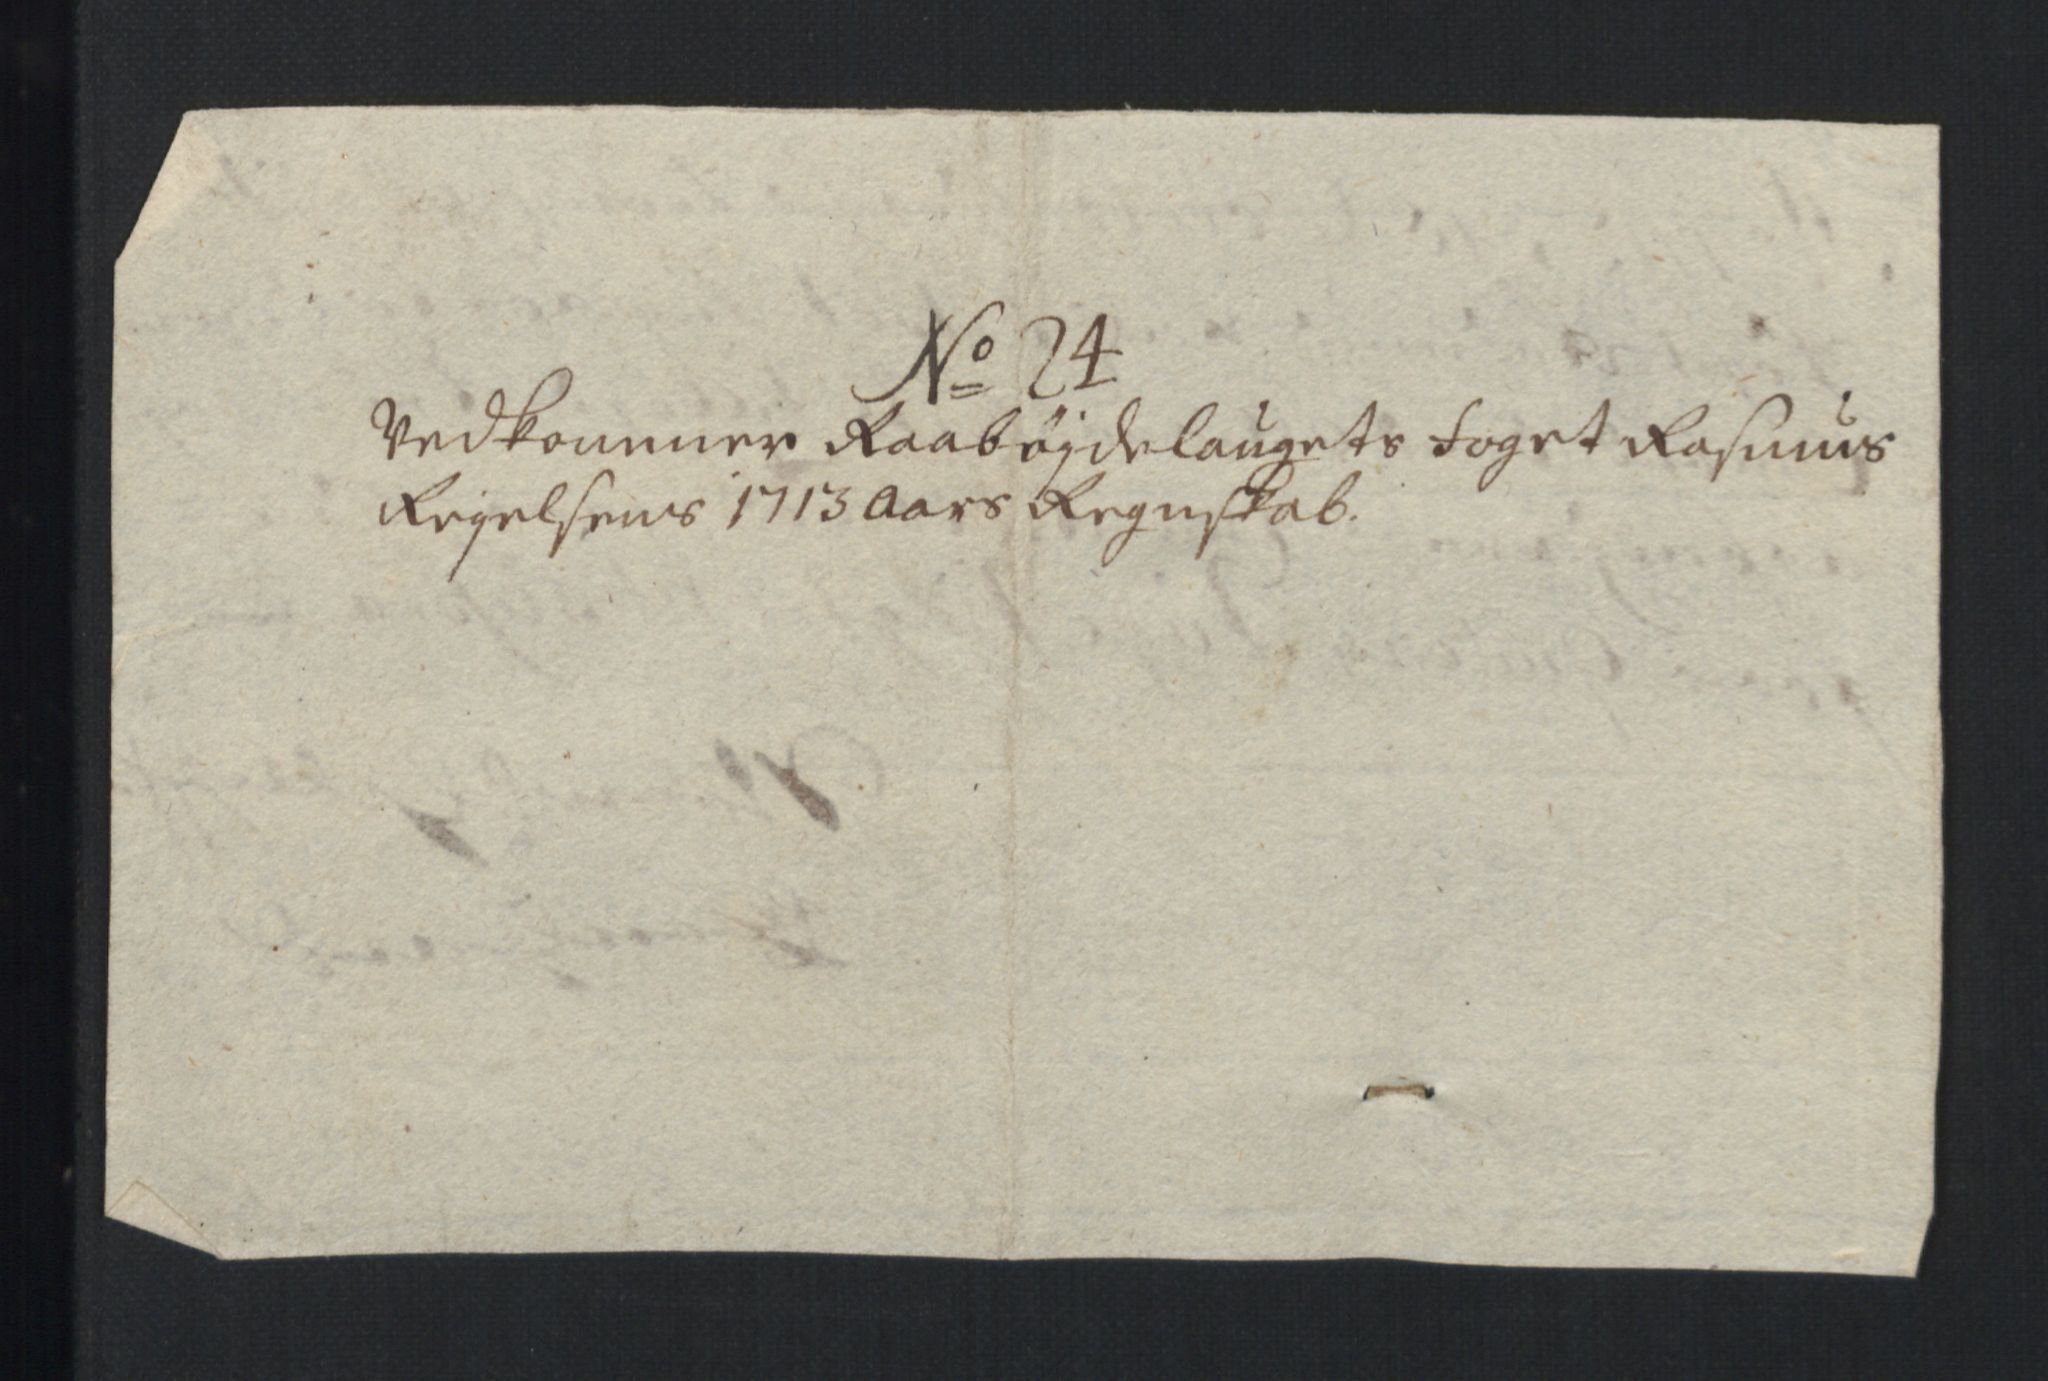 No 24
Vedkommer Raabøjdelaugets foget Rasmus
Rejelsens 1713 Aars Regnskab.